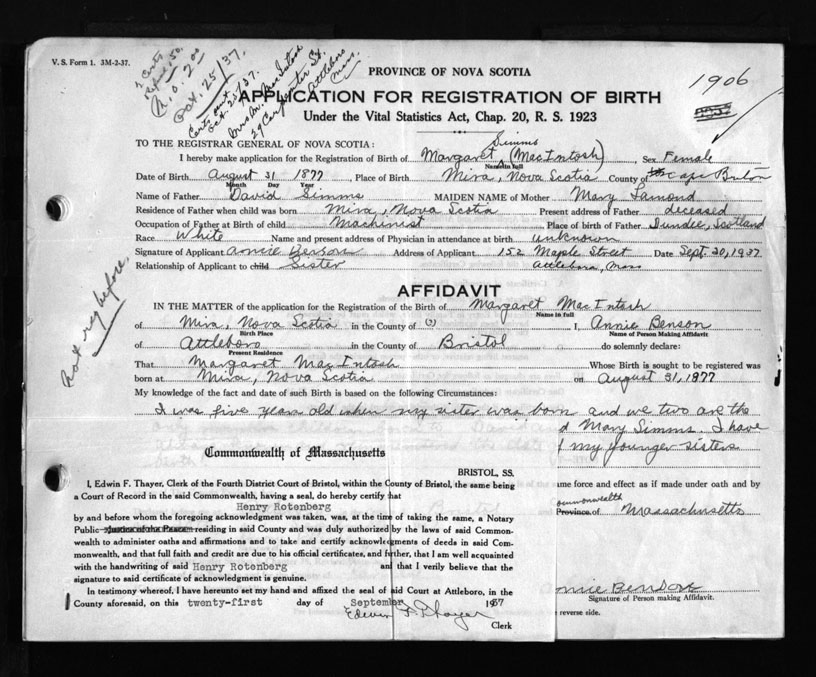 V. S. Form 1. 3M-2-37.
2 Certs
Refund .50
M.O. 2.00
Oct. 25/37.
Certs sent
Oct. 25/37.
Mrs M. MacIntosh
29 Carpenter St.
Attleboro
Mass.
1906
PROVINCE OF NOVA SCOTIA
APPLICATION FOR REGISTRATION OF BIRTH
Under the Vital Statistics Act, Chap. 20, R. S. 1923
TO THE REGISTRAR GENERAL OF NOVA SCOTIA:
Simms
I hereby make application for the Registration of Birth of Margaret (MacIntosh), Sex Female
Name in full
Date of Birth August 31 1877, Place of Birth Mira, Nova Scotia County of Cape Breton
Month Day Year
Name of Father David Simms MAIDEN NAME of Mother Mary Lamond
Residence of Father when child was born Mira, Nova Scotia Present address of Father deceased
Occupation of Father at Birth of child Machinist Place of birth of Father Dundee, Scotland
Race White Name and present address of Physician in attendance at birth unknown
Signature of Applicant Annie Benson Address of Applicant 152 Maple Street Date Sept. 20, 1937
Relationship of Applicant to child Sister Attleboro, Mass
Not reg before.
AFFIDAVIT
IN THE MATTER of the application for the Registration of the Birth of Margaret MacIntosh
Name in full
of Mira, Nova Scotia in the County of (?) I, Annie Benson
Birth Place Name of Person Making Affidavit
of Attleboro in the County of Bristol do solemnly declare:
Present Residence
That Margaret MacIntosh Whose Birth is sought to be registered was
born at Mira, Nova Scotia on August 31, 1877
My knowledge of the fact and date of such Birth is based on the following Circumstances:
I was five years old when my sister was born and we two are the
d Mary Simms. I have
f my younger sisters
Commonwealth of Massachusetts
BRISTOL, SS.
I, Edwin F. Thayer, Clerk of the Fourth District Court of Bristol, within the County of Bristol, the same being
a Court of Record in the said Commonwealth, having a seal, do hereby certify that
Henry Rotenberg
by and before whom the foregoing acknowledgment was taken, was, at the time of taking the same, a Notary
Public Justice of the Peace residing in said County and was duly authorized by the laws of said Common-
wealth to administer oaths and affirmations and to take and certify acknowledgments of deeds in said Com-
monwealth, and that full faith and credit are due to his official certificates, and further, that I am well acquainted
with the handwriting of said Henry Rotenberg and that I verily believe that the
signature to said certificate of acknowledgment is genuine.
In testimony whereof, I have hereunto set my hand and affixed the seal of said Court at Attleboro, in the
County aforesaid, on this twenty-first day of September 1937
Edwin F. Thayer
Clerk
ame force and effect as if made under oath and by
ommonwealth
Province of Massachusetts
nnie Benson
Signature of Person making Affidavit.
reverse side.